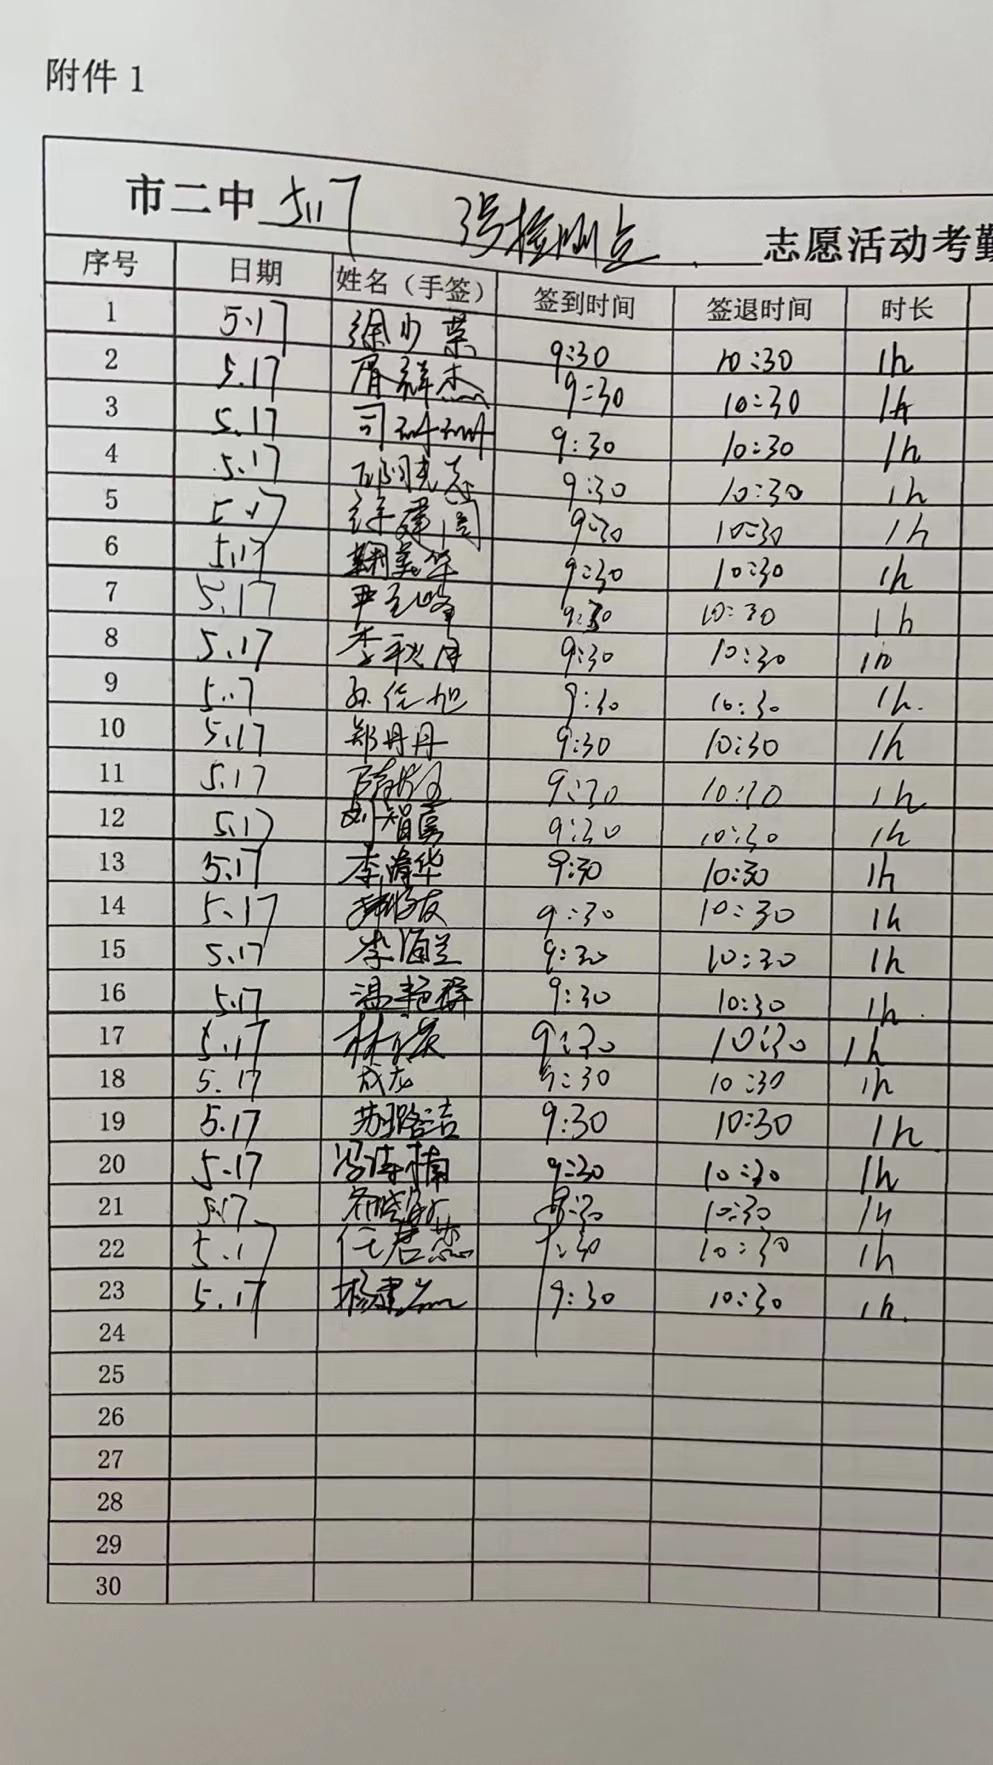 附件 1
市二中 5.17 3号检测点 志愿活动考勤
序号 日期 姓名（手签） 签到时间 签退时间 时长
1 5.17 徐少荣 9:30 10:30 1h
2 5.17 胥祥杰 9:30 10:30 1h
3 5.17 司 9:30 10:30 1h
4 5.17 9:30 10:30 1h
5 5.17 徐建阁 9:30 10:30 1h
6 5.17 鞠美华 9:30 10:30 1h
7 5.17 尹 峰 9:30 10:30 1h
8 5.17 李秋月 9:30 10:30 1h
9 5.17 旭 9:30 10:30 1h.
10 5.17 郑丹丹 9:30 10:30 1h
11 5.17 9:30 10:30 1h
12 5.17 刘智勇 9:30 10:30 1h
13 5.17 李 华 9:30 10:30 1h
14 5.17 友 9:30 10:30 1h
15 5.17 李海兰 9:30 10:30 1h
16 5.17 温艳群 9:30 10:30 1h.
17 5.17 林 9:30 10:30 1h
18 5.17 成龙 9:30 10:30 1h
19 5.17 苏璐洁 9:30 10:30 1h
20 5.17 冯 楠 9:30 10:30 1h
21 5.17 9:30 10:30 1h
22 5.17 任君蕊 9:30 10:30 1h
23 5.17 杨建 9:30 10:30 1h.
24
25
26
27
28
29
30